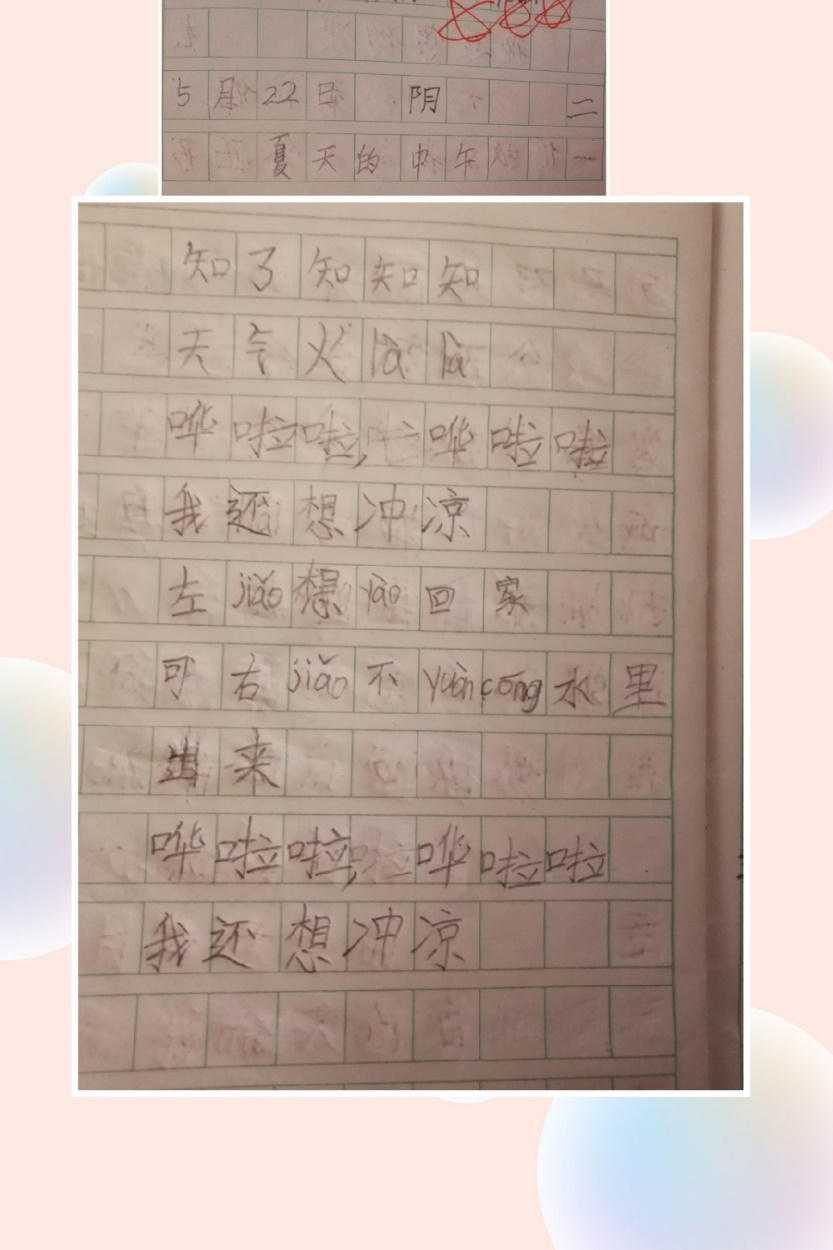 5月22日 阴 二
夏天的中午
知了知知知
天气火là là
哗啦啦,哗啦啦
我还想冲凉
左jiǎo想yào回家
可右jiǎo不yuàn cóng水里
出来
哗啦啦,哗啦啦
我还想冲凉